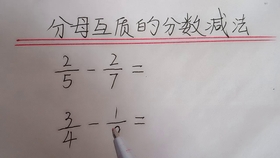 分母互质的分数减法
2/5 - 2/7 =
3/4 - 1/ =